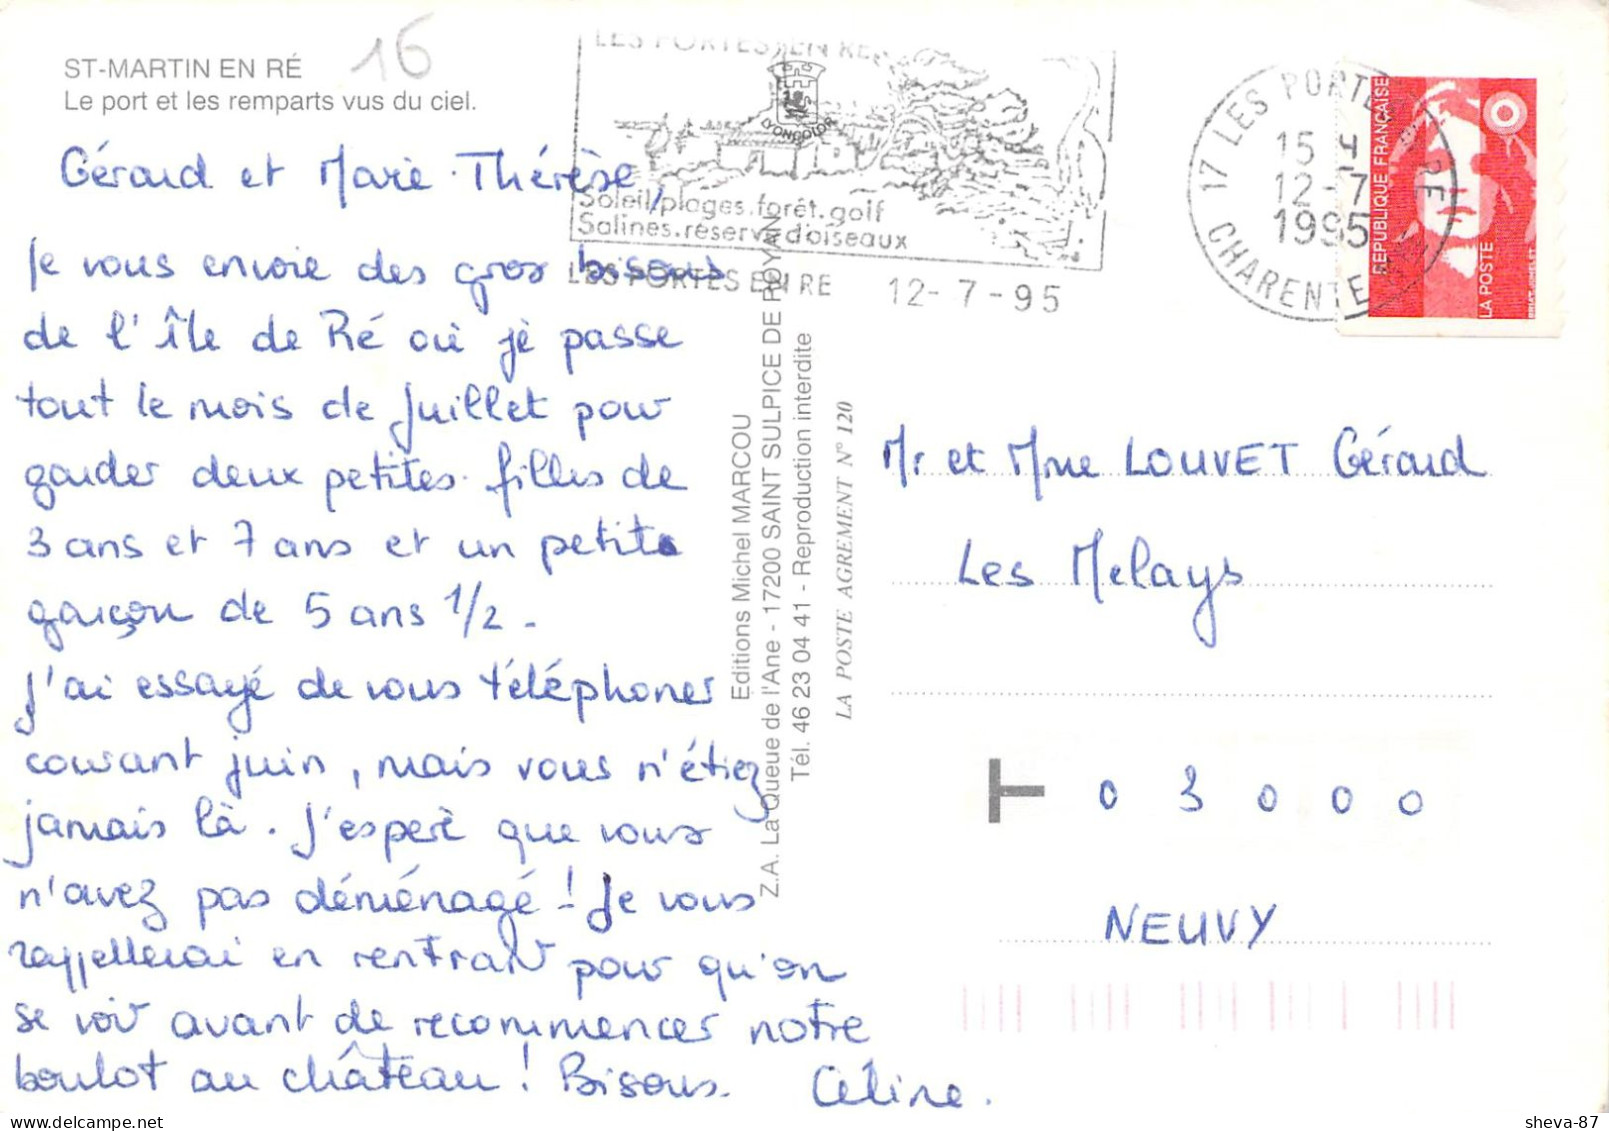 ST-MARTIN EN RÉ
Le port et les remparts vus du ciel.
16
LES PORTES EN RE
LYONCOLOR
Soleil/plages.forêt.golf
Salines.réserve d'oiseaux
LES PORTES EN RE 12-7-95
17 LES PORTES RE
15 H
12-7
1995
CHARENTE
REPUBLIQUE FRANÇAISE
LA POSTE
Géraud et Marie-Thérèse,
Je vous envoie des gros bisous
de l'Île de Ré où je passe
tout le mois de Juillet pour
garder deux petites filles de
3 ans et 7 ans et un petit
garçon de 5 ans 1/2.
J'ai essayé de vous téléphoner
courant juin, mais vous n'étiez
jamais là. J'espère que vous
n'avez pas déménagé ! Je vous
rappellerai en rentrant pour qu'on
se voit avant de recommencer notre
boulot au château ! Bisous. Céline.
Editions Michel MARCOU
Z.A. La Queue de l'Ane - 17200 SAINT SULPICE DE ROYAN
Tél. 46 23 04 41 - Reproduction interdite
LA POSTE AGREMENT N° 120
Mr et Mme LOUVET Géraud
Les Melays
03000
NEUVY
sheva-87